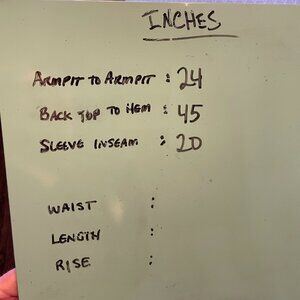 INCHES
ARMPIT TO ARMPIT : 24
BACK TOP TO HEM : 45
SLEEVE INSEAM : 20
WAIST :
LENGTH :
RISE :